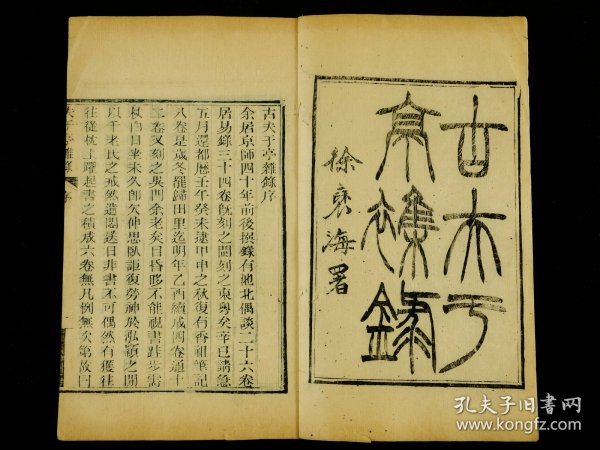 古夫于
亭雜錄
徐褎海署
古夫于亭雜錄序
余居京師四十年前後撰錄有池北偶談二十六卷
居易錄三十四卷既刻之閩刻之東粤矣辛巳請急
五月還都歷壬午癸未逮甲申之秋復有香祖筆記
八卷是歲冬罷歸田里迄明年乙酉續成四卷通十
二卷又刻之吳門余老矣目昏眵不能視書跬步需
杖白日坐未久即欠伸思臥詎復勞神於泓潁之間
以干老氏之戒然遣悶送日非書不可偶然有獲往
往從枕上躍起書之積成六卷無凡例無次第故曰
夫于亭雜錄 序
孔夫子旧书网
www.kongfz.com